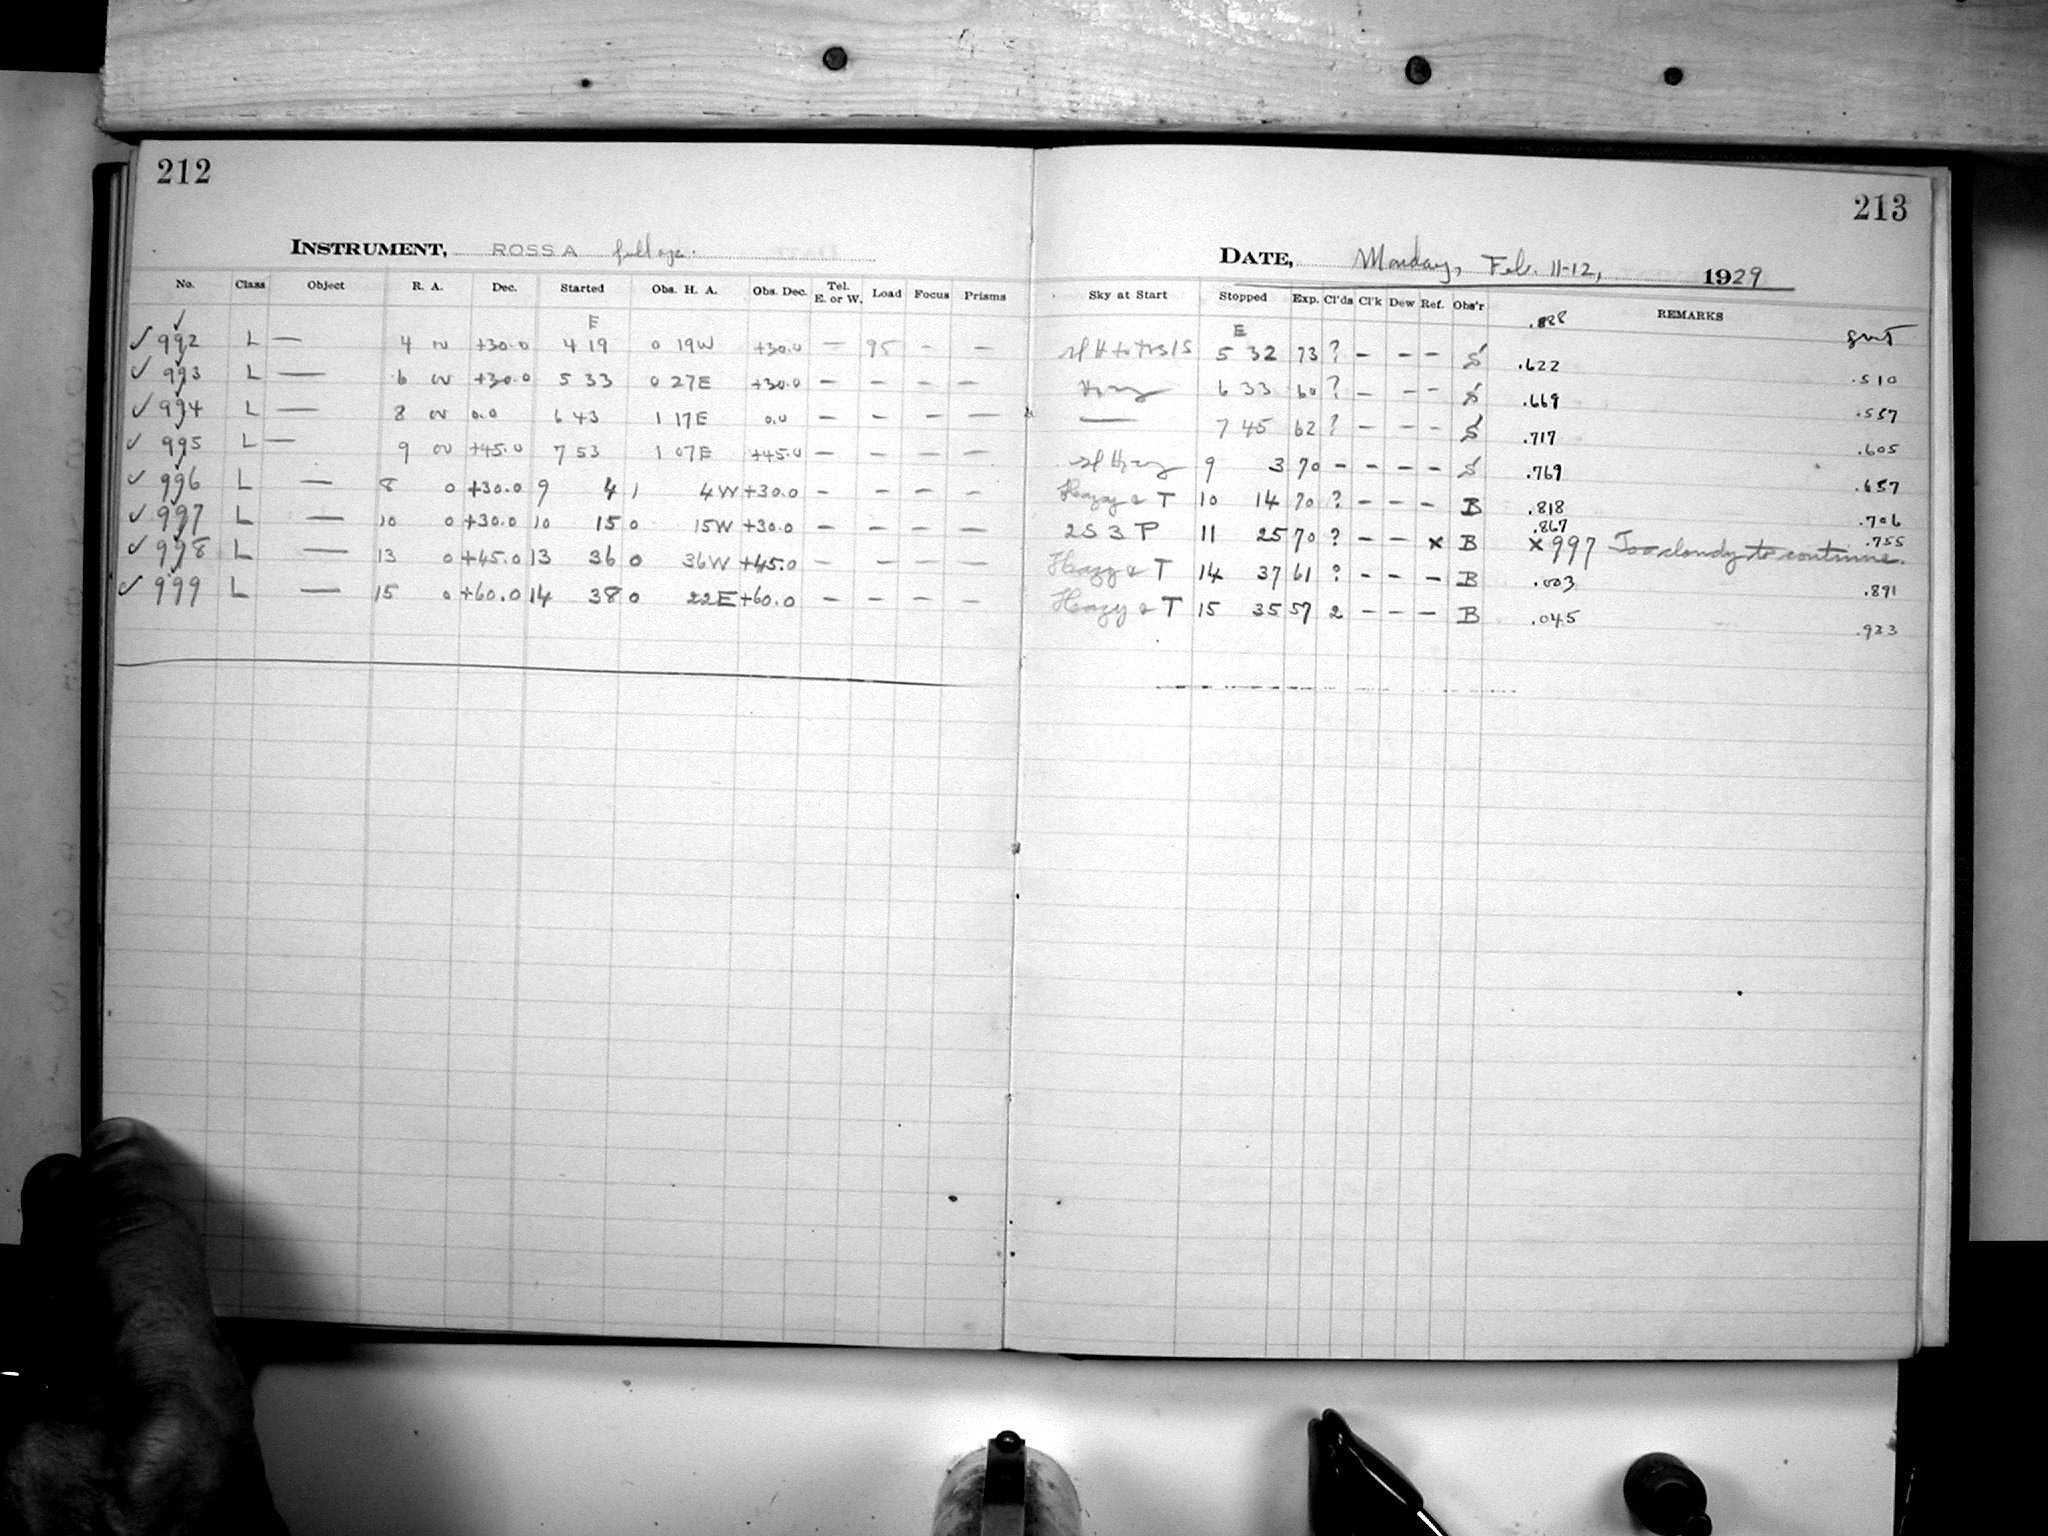 212
213
INSTRUMENT, ROSS A full ape.
DATE, Monday, Feb. 11-12, 1929
No. Class Object R. A. Dec. Started Obs. H. A. Obs. Dec. Tel. E. or W. Load Focus Prisms Sky at Start Stopped Exp. Cl'ds Cl'k Dew Ref. Obs'r REMARKS
E E .828 GMT
✓ 992 L — 4 00 +30.0 4 19 0 19W +30.0 — 95 - — 5 32 73 ? - - - S .622 .510
✓ 993 L — 6 00 +30.0 5 33 0 27E +30.0 — - - — Hazy 6 33 60 ? - - - S .669 .557
✓ 994 L — 8 00 0.0 6 43 1 17E 0.0 — - - — — 7 45 62 ? - - - S .717 .605
✓ 995 L — 9 00 +45.0 7 53 1 07E +45.0 — - - — Sl Hazy 9 3 70 - - - - S .769 .657
✓ 996 L — 8 0 +30.0 9 4 1 4W +30.0 - - - — Hazy & T 10 14 70 ? - - - B .818 .706
✓ 997 L — 10 0 +30.0 10 15 0 15W +30.0 — - - — 2S 3 P 11 25 70 ? - - × B .867 × 997 Too cloudy to continue. .755
✓ 998 L — 13 0 +45.0 13 36 0 36W +45.0 — - - — Hazy & T 14 37 61 ? - - - B .003 .891
✓ 999 L — 15 0 +60.0 14 38 0 22E +60.0 — - - — Hazy & T 15 35 57 2 - - - B .045 .933